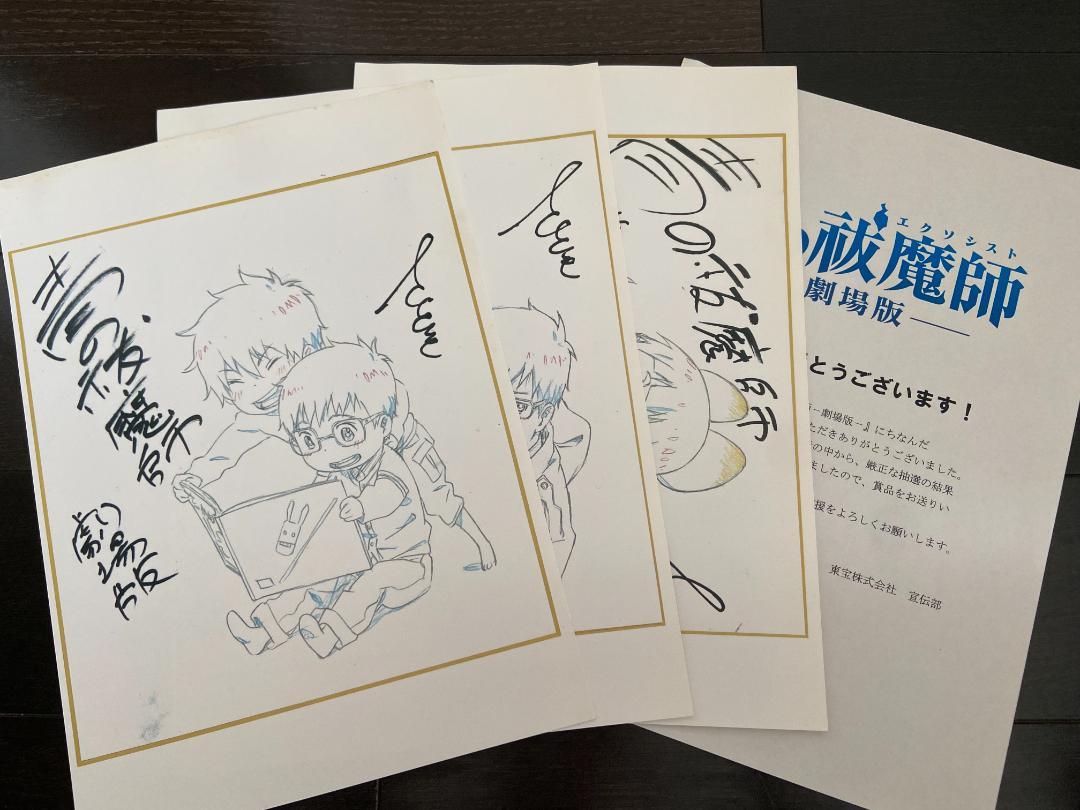 青の祓魔師
劇場版
青の祓魔師
エクソシスト
祓魔師
劇場版
とうございます！
－劇場版－』にちなんだ
ただきありがとうございました。
の中から、厳正な抽選の結果
ましたので、賞品をお送りい
援をよろしくお願いします。
東宝株式会社　宣伝部